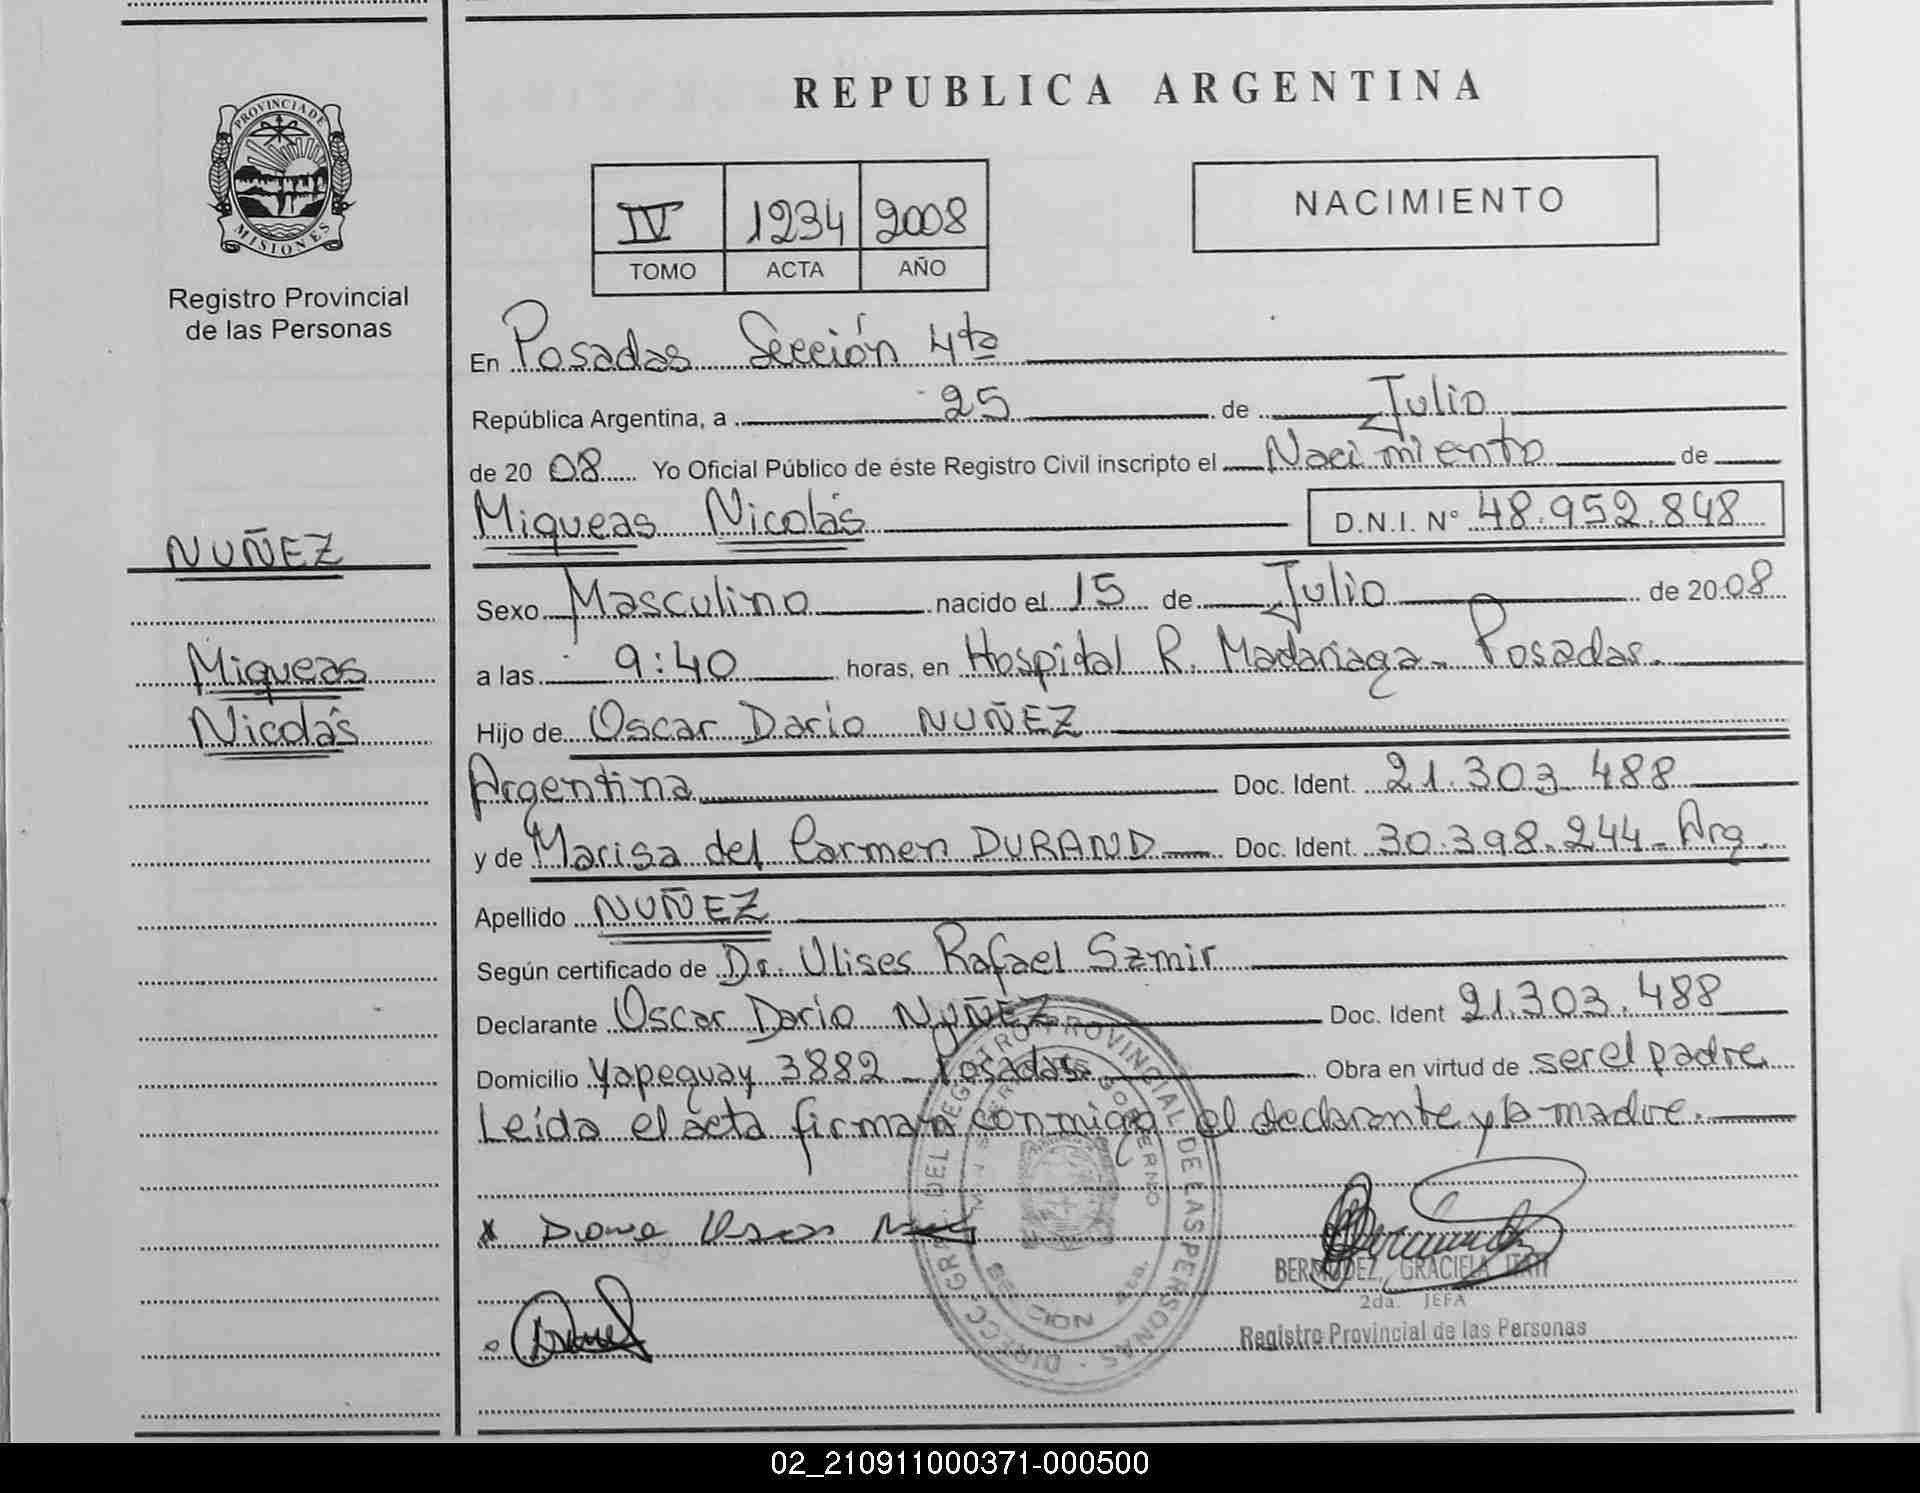 REPUBLICA ARGENTINA
PROVINCIA DE
MISIONES
Registro Provincial
de las Personas
IV 1234 2008
TOMO ACTA AÑO
NACIMIENTO
En Posadas Sección 4ta
República Argentina, a 25 de Julio
de 2008 Yo Oficial Público de éste Registro Civil inscripto el Nacimiento de
Miqueas Nicolás D.N.I. N° 48.952.848
NUÑEZ
Sexo Masculino nacido el 15 de Julio de 2008
Miqueas
a las 9:40 horas, en Hospital R. Madariaga - Posadas.
Nicolás
Hijo de Oscar Dario NUÑEZ
Argentina Doc. Ident. 21.303.488
y de Marisa del Carmen DURAND Doc. Ident. 30.398.244 - Arg.
Apellido NUÑEZ
Según certificado de Dr. Ulises Rafael Szmir
Declarante Oscar Dario NUÑEZ Doc. Ident 21.303.488
Domicilio Yapeguay 3882 - Posadas Obra en virtud de ser el padre
Leída el acta firman conmigo el declarante y la madre.
DIRECC. GRAL. DEL REGISTRO PROVINCIAL DE LAS PERSONAS
GOBIERNO
BERMUDEZ, GRACIELA ITATI
2da. JEFA
Registro Provincial de las Personas
02_210911000371-000500